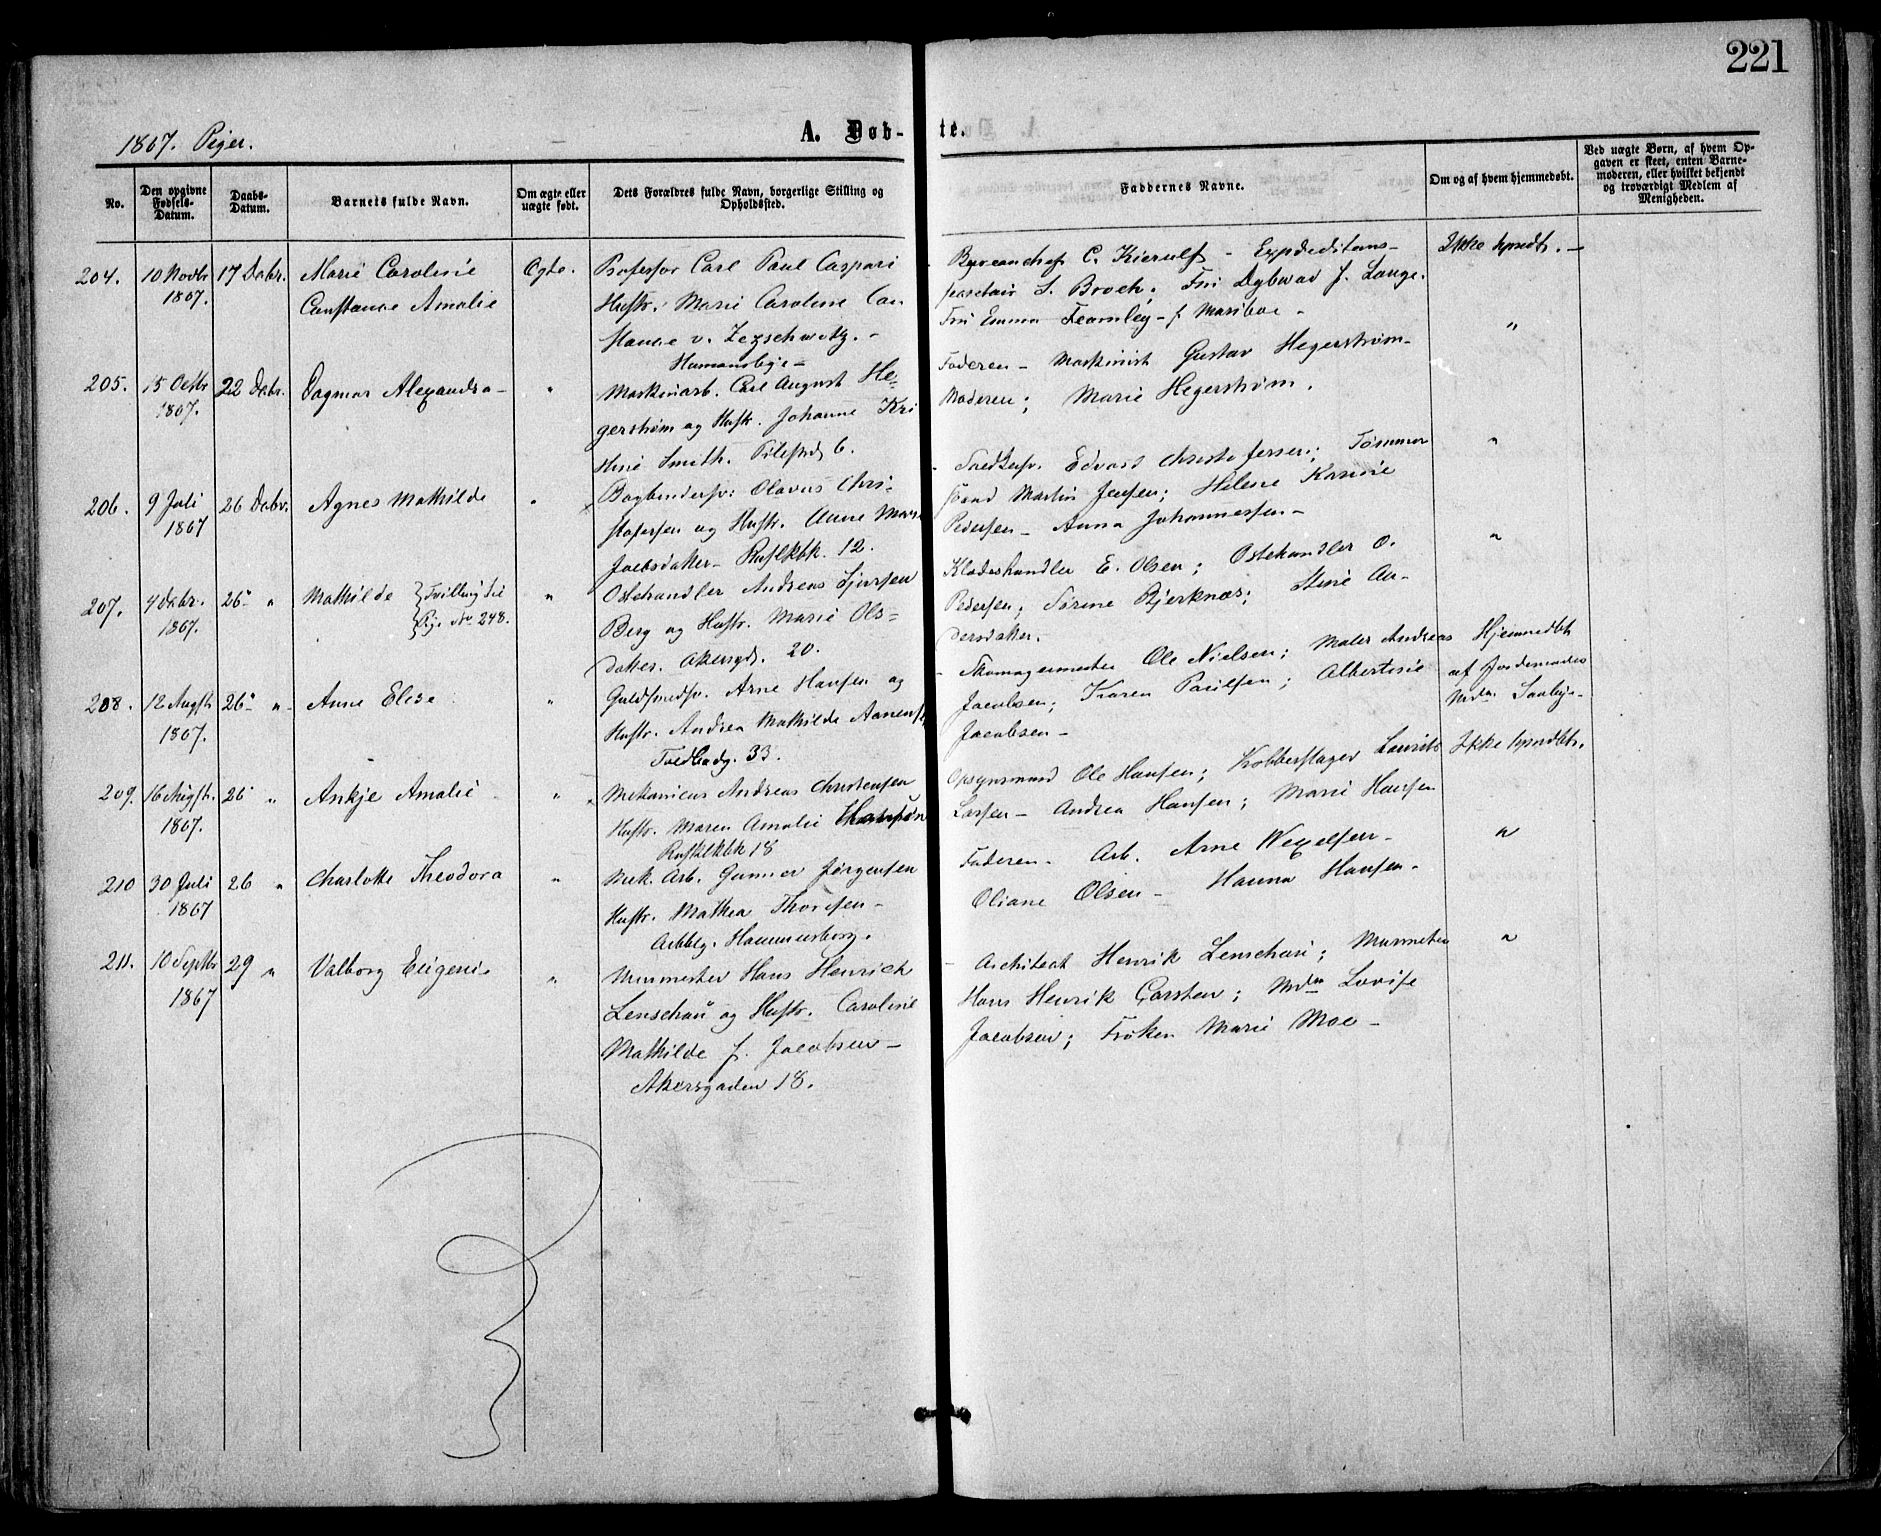 221
1867. Piger.
A. Døb- te.
No.
Den opgivne Fødsels-Datum.
Daabs-Datum.
Barnets fulde Navn.
Om ægte eller uægte født.
Dets Forældres fulde Navn, borgerlige Stilling og Opholdssted.
Faddernes Navne.
Om og af hvem hjemmedøbt.
Ved uægte Børn, af hvem Opgaven er skeet, enten Barnemoderen, eller hvilket bekjendt og troværdigt Medlem af Menigheden.
204. 10 Novbr 1867. 17 Dcbr. Marie Caroline Constance Amalie
Ægte.
Professor Carl Paul Caspari
Hustr. Marie Caroline Con
stance v. Zezschwitz. -
Homansbye -
Bureauchef C. Kierulf - Expeditions-
secretair S. Broch; Fru Dybwad f. Lange.
Fru Emma Fearnley - f. Mariboe -
Ikke hjmdbt. -
205. 15 Octbr 1867. 22 Dcbr. Dagmar Alexandra -
"
Maskinarb. Carl August He-
gerstrøm og Hustr. Johanne Kri
stine Smith. Pilestrd. 6.
Faderen - Maskinist Gustav Hegerstrøm -
Moderen; Marie Hegerstrøm.
"
206. 9 Juli 1867 26 Dcbr. Agnes Mathilde
"
Bogbindersv: Olavus Chri-
stofersen og Hustr. Anne Marie
Jacbsdatter - Rusløkbk. 12.
Edvard Christofersen; Tømmer
mand Martin Jensen; Helene Karine
Pedersen - Anna Johannessen -
"
207. 4 Dcbr. 1867. 26 " Mathilde
Tvilling til
Pige No 248.
"
Ostehandler Andreas Sjursen
Berg og Hustr. Marie Ols-
datter. Akersgd. 20.
Klædeshandler E. Olsen; Ostehandler O.
Pedersen; Sørine Bjerknæs; Stine An-
dersdatter.
"
208. 12 Augst. 1867. 26 " Anne Elise
"
Guldsmedsv. Arne Hansen og
Hustr. Andrea Mathilde Aanensen
Toldbodg. 33.
Skomagermester Ole Nielsen; Maler Andreas
Jacobsen; Karen Paulsen; Albertine
Jacobsen -
Hjemmedbt
af Jordemoder
Mdm
209. 16 Augst. 1867. 26 " Ankje Amalie
"
Mekanicus Andreas Christensen
Hustr. Maren Amalie
Rusløkbk 18
Opsynsmand Ole Hansen; Kobberslager Laurits
Larsen - Andrea Hansen; Marie Hansen
Ikke hjmdbt.
210 30 Juli 1867 26 " Charlotte Theodora
"
Mek. Arb. Gunner Jørgensen
Hustr. Mathea Thoresen -
Hammersborg.
Faderen - Arb. Arne Wexelsen -
Oliane Olsen - Hanna Hansen -
"
211. 10 Septbr 1867 29 " Valborg Eugenie
"
Murmester Hans Henrich
Lenschau og Hustr. Caroline
Mathilde f. Jacobsen -
Akersgaden 18.
Architect Henrik Lenschau; Murmester
Hans Henrik Carsten; Mdm Lovise
Jacobsen; Frøken Marie Moe -
"